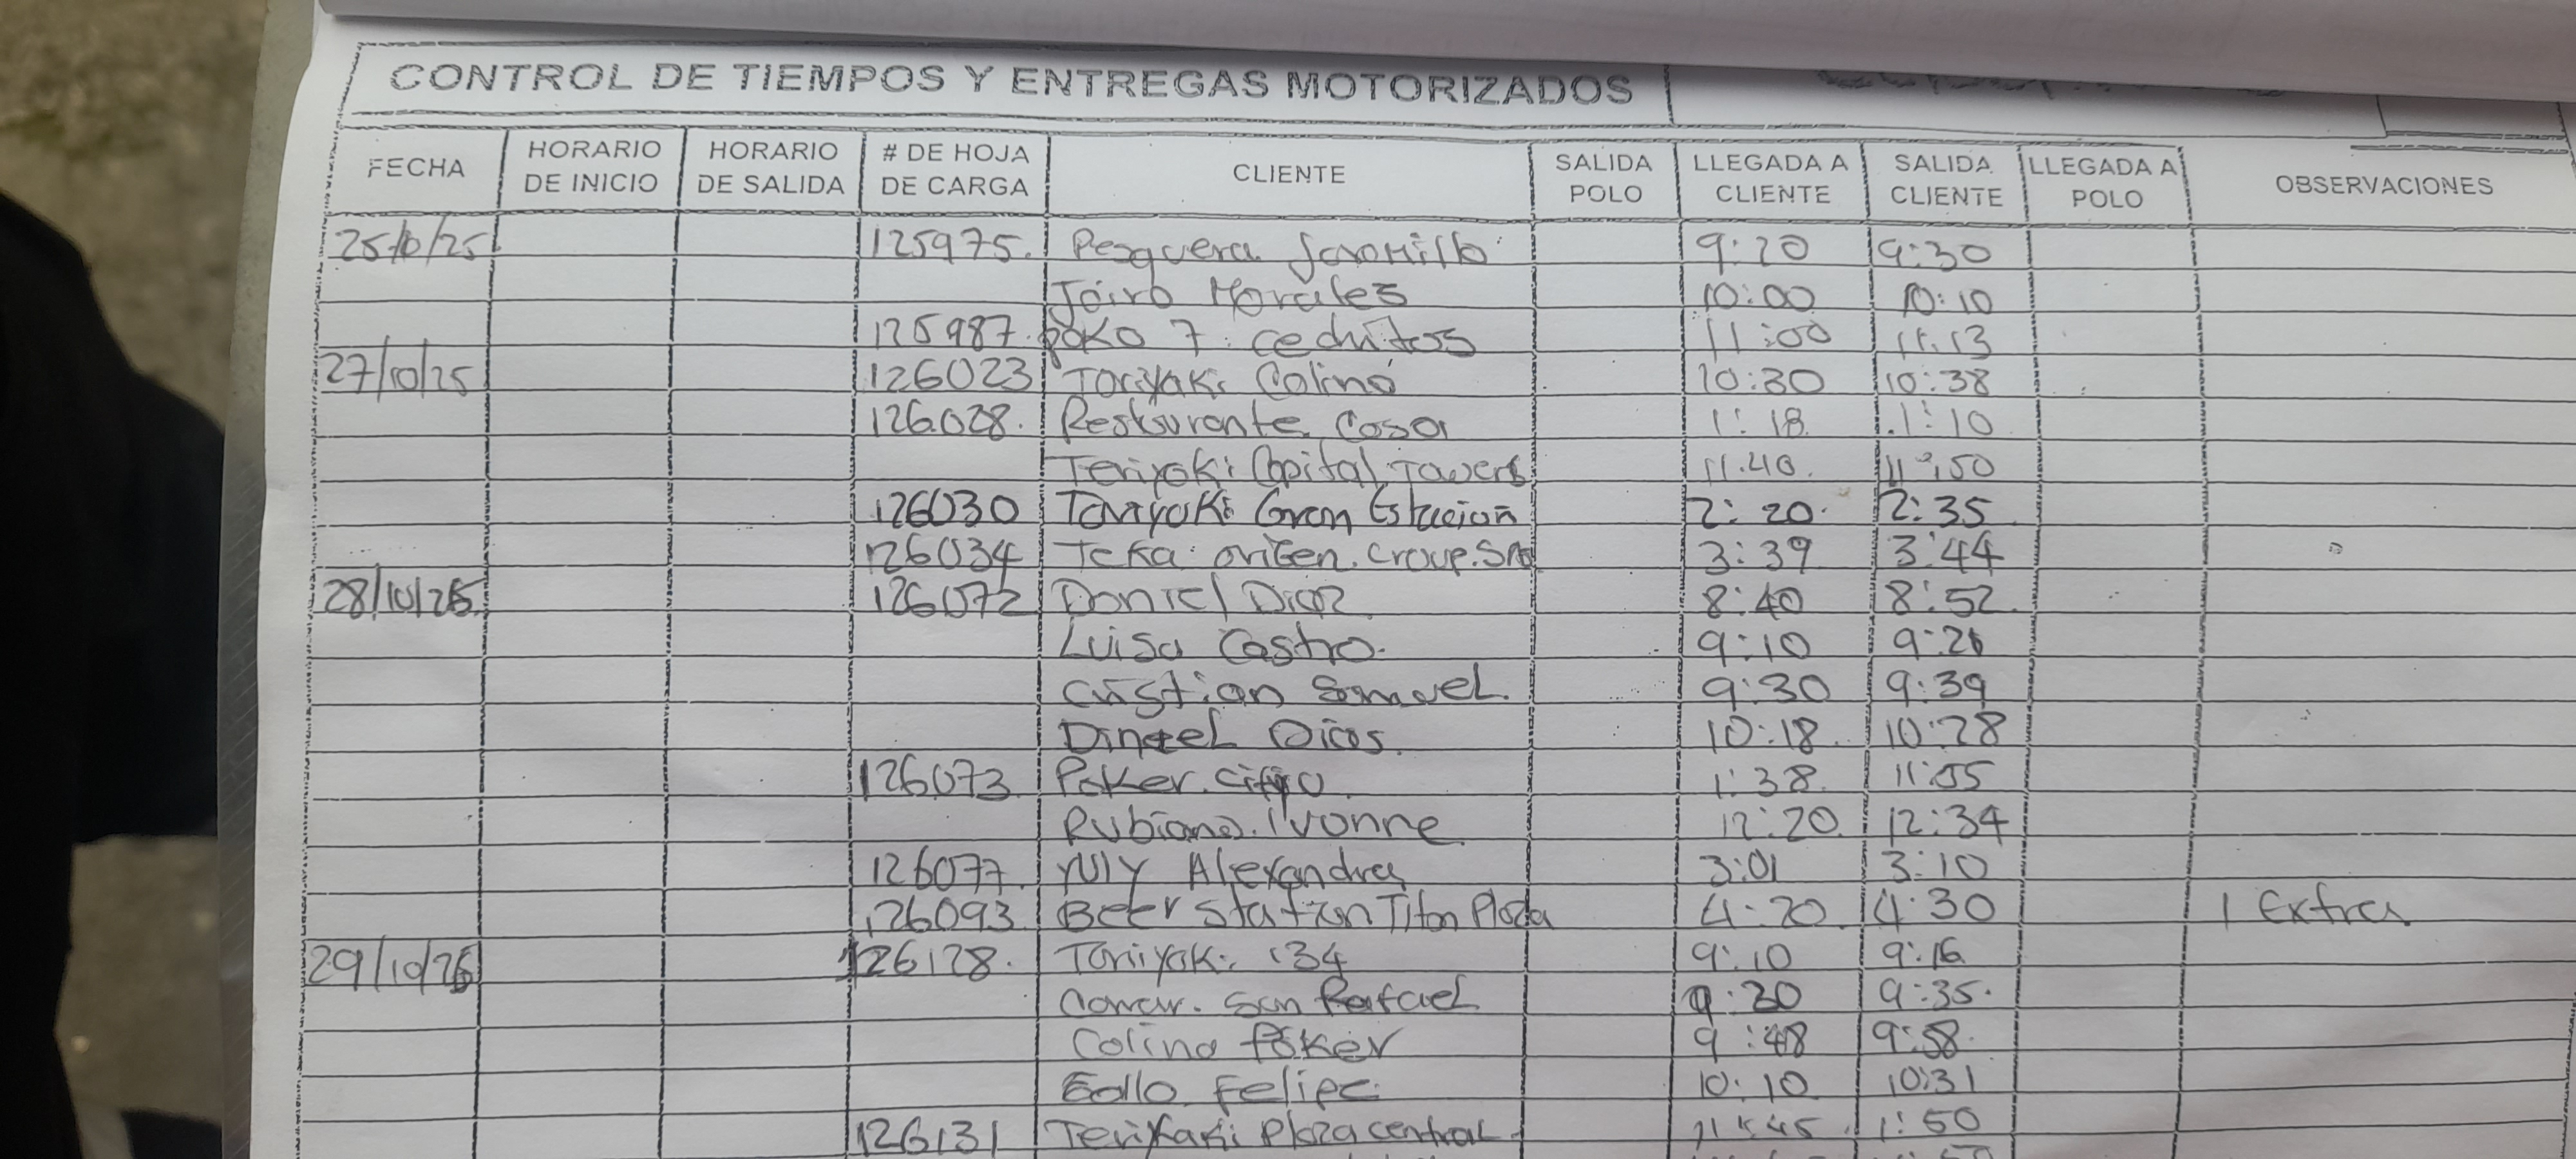 CONTROL DE TIEMPOS Y ENTREGAS MOTORIZADOS
FECHA HORARIO DE INICIO HORARIO DE SALIDA # DE HOJA DE CARGA CLIENTE SALIDA POLO LLEGADA A CLIENTE SALIDA CLIENTE LLEGADA A POLO OBSERVACIONES
25/10/25 125975. Pesquera Jaramillo 9:20 9:30
Jairo Morales 10:00 10:10
125987. poko 7. cedritos 11:00 11:13
27/10/25 126023 Toriyaki Colina 10:30 10:38
126028. Restaurante Casa 1:18 1:10
Teriyaki Capital Towers 11:40. 11:50
126030 Toriyaki Gran Estacion 2:20. 2:35
126034 Teka origen. Group. 3:39 3:44
28/10/25 126072 Daniel Diaz 8:40 8:52
Luisa Castro. 9:10 9:21
Cristian Samuel. 9:30 9:39
10:18 10:28
126073 Poker. 1:38. 11:55
Rubiano. Ivonne 12:20 12:34
126077 Yuly Alexandra 3:01 3:10
126093 Beer station Titan Plaza 4:20 4:30 1 Extra
29/10/25 126128. Toriyaki 134 9:10 9:16
San Rafael 9:30 9:35.
Colina Poker 9:48 9:58
Gallo Felipe 10:10 10:31
126131 Teriyaki Plaza central 11:45 1:50